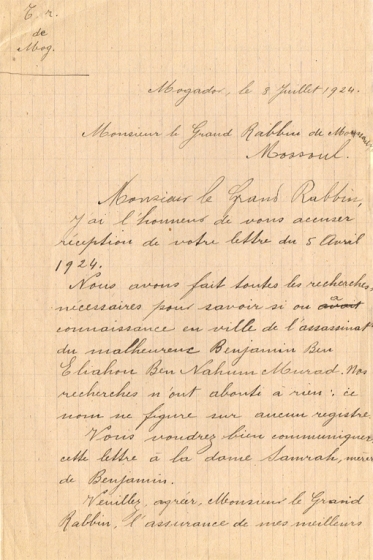 T. r.
de
Mog.
Mogador, le 8 Juillet 1924.
Monsieur le Grand Rabbin de
Mossoul.
Monsieur le Grand Rabbin,
J'ai l'honneur de vous accuser
réception de votre lettre du 5 Avril
1924.
Nous avons fait toutes les recherches
nécessaires pour savoir si on a
connaissance en ville de l'assassinat
du malheureux Benjamin Ben
Eliahou Ben Nahum Murad. Nos
recherches n'ont abouti à rien : ce
nom ne figure sur aucun registre.
Vous voudrez bien communiquer
cette lettre à la dame Samrah, mère
de Benjamin.
Veuillez, agréer, Monsieur le Grand
Rabbin, l'assurance de mes meilleurs